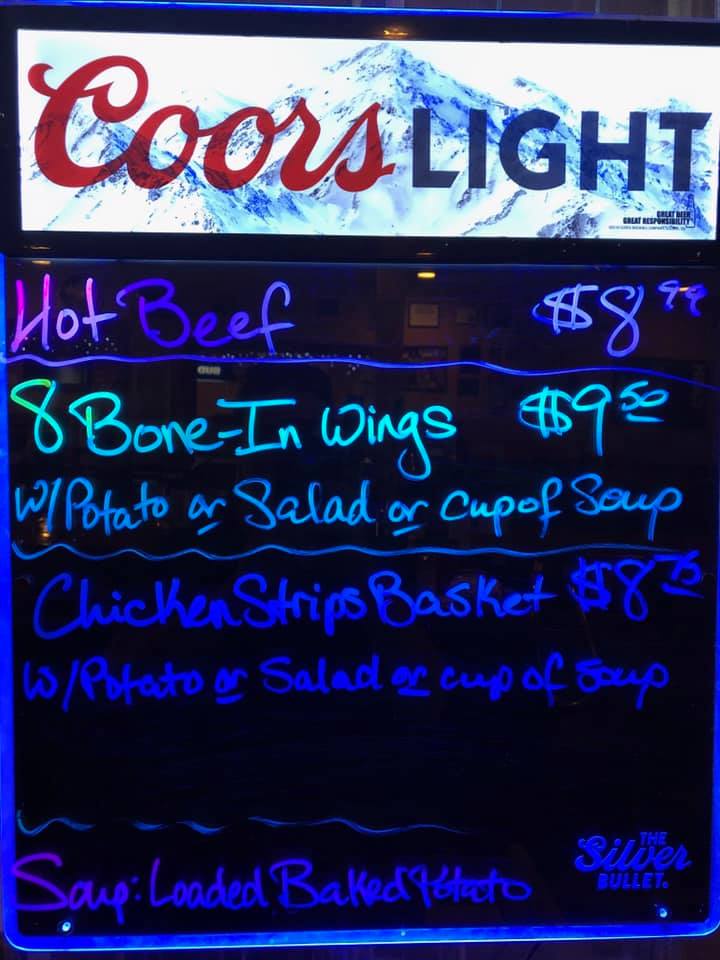 Coors LIGHT
GREAT BEER
GREAT RESPONSIBILITY
Hot Beef $8.99
8 Bone-In Wings $9.50
W/Potato or Salad or Cup of Soup
Chicken Strips Basket $8.75
W/Potato or Salad or cup of soup
THE
Silver
BULLET.
Soup: Loaded Baked Potato